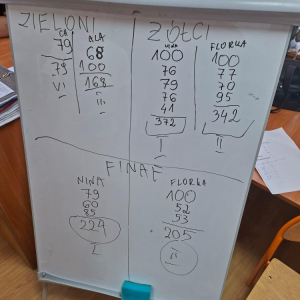 ZIELONI
79
79
VI
ALA
68
100
168
III
ŻÓŁCI
NINA
100
76
79
76
41
372
I
FLORKA
100
77
70
95
342
II
FINAŁ
NINA
79
60
85
224
I
FLORKA
100
52
53
205
II